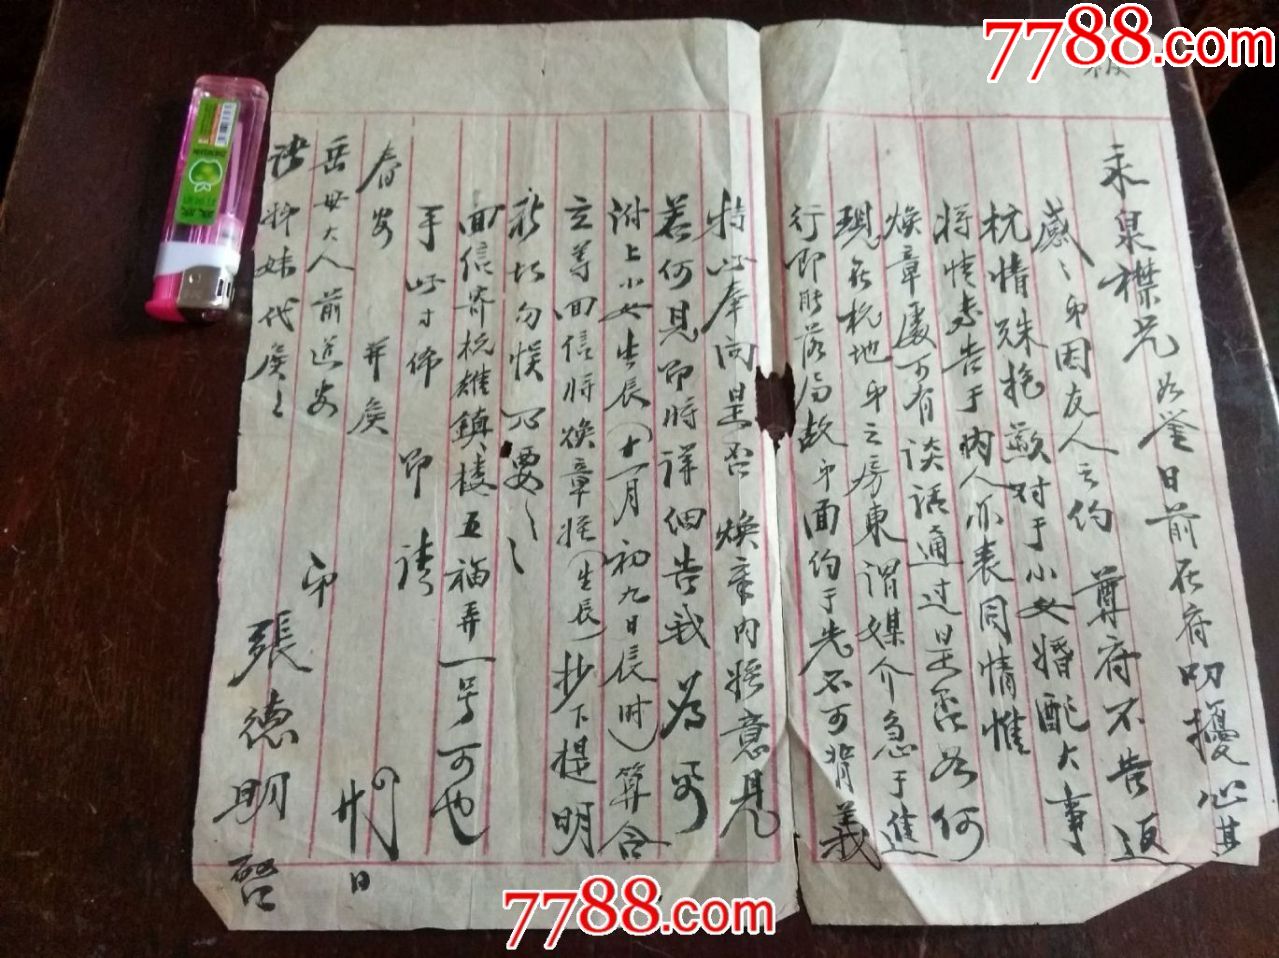 7788.com
永泉襟兄 如鉴日前在府叨擾心甚
感々弟因友人之约 尊府不告返
杭情殊抱歉对于小女婚配大事
将情悉告于内人亦表同情惟
焕章處可有谈话通过是否如何
現在杭地弟之房東谓媒介急于進
行即能落局故弟面约于先不可背義
特此奉问是否 焕章内将意見
若何見即时详细告我为可
附上小女生辰(十一月初九日辰时)算合
立等回信将焕章 (生辰)抄下提明
勿悞 要々々
回信寄杭雄鎮楼五福弄一号可也
手此寸佈 即请
春安 并候
岳母大人前送安 弟
諸姊妹代候之 張德明啓
廿 日
7788.com